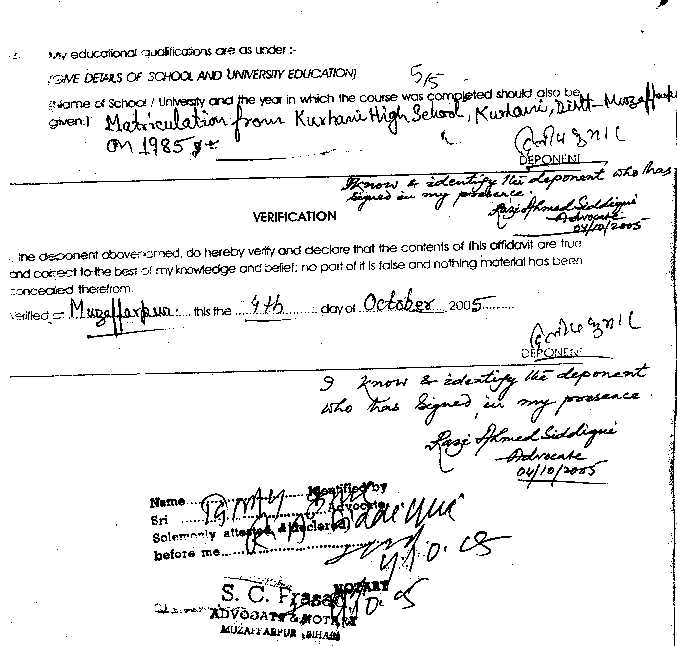 My educational qualifications are as under :-
(GIVE DETAILS OF SCHOOL AND UNIVERSITY EDUCATION)
5/5
(Name of School / University and the year in which the course was completed should also be
given.) Matriculation from Kurhani High School, Kurhani, Distt- Muzaffarpur
on 1985
DEPONENT
I know & identify the deponent who has
signed in my presence.
Razi Ahmed Siddiqui
Advocate
04/10/2005
VERIFICATION
, the deponent abovenamed, do hereby verify and declare that the contents of this affidavit are true
and correct to the best of my knowledge and belief; no part of it is false and nothing material has been
concealed therefrom.
verified at Muzaffarpur this the 4th day of October 2005
DEPONENT
I know & identify the deponent
who has signed in my presence
Razi Ahmed Siddiqui
Advocate
04/10/2005
Name Identified by
Sri Advocate
Solemonly attested & declared)
before me
4.10.05
NOTARY
S. C. Prasad 4.10.05
ADVOCATE & NOTARY
MUZAFFARPUR (BIHAR)